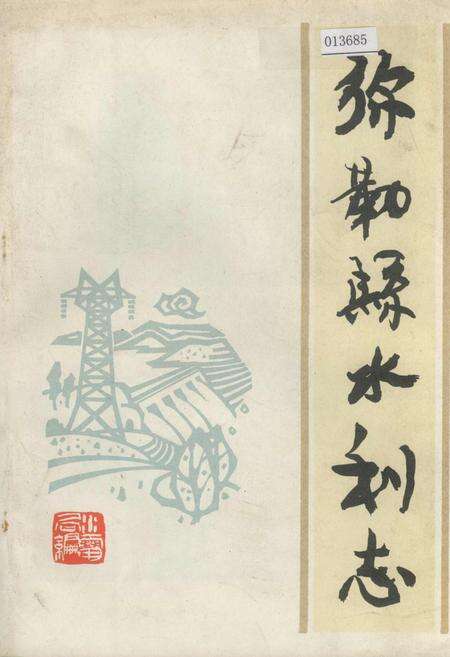 013685
弥勒縣水利志